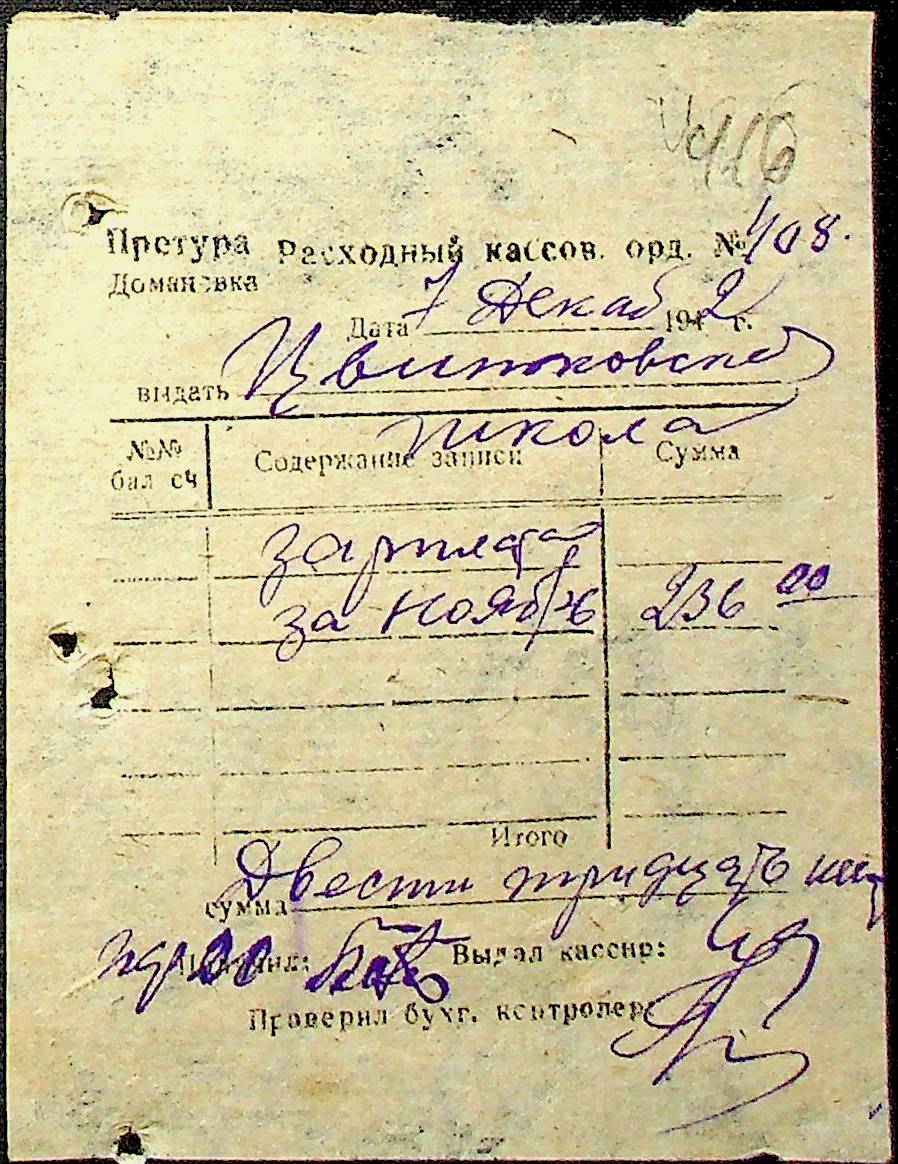 416
Претура Расходный кассов. орд. № 408.
Домановка
Дата 7 Декаб 1942 г.
выдать Цвитковской
школа
№№ бал сч Содержание записи Сумма
зарплата
за Ноябрь 236 00
Итого
сумма Двести тридцать шест
00 Выдал кассир:
Проверил бухг. контролер: